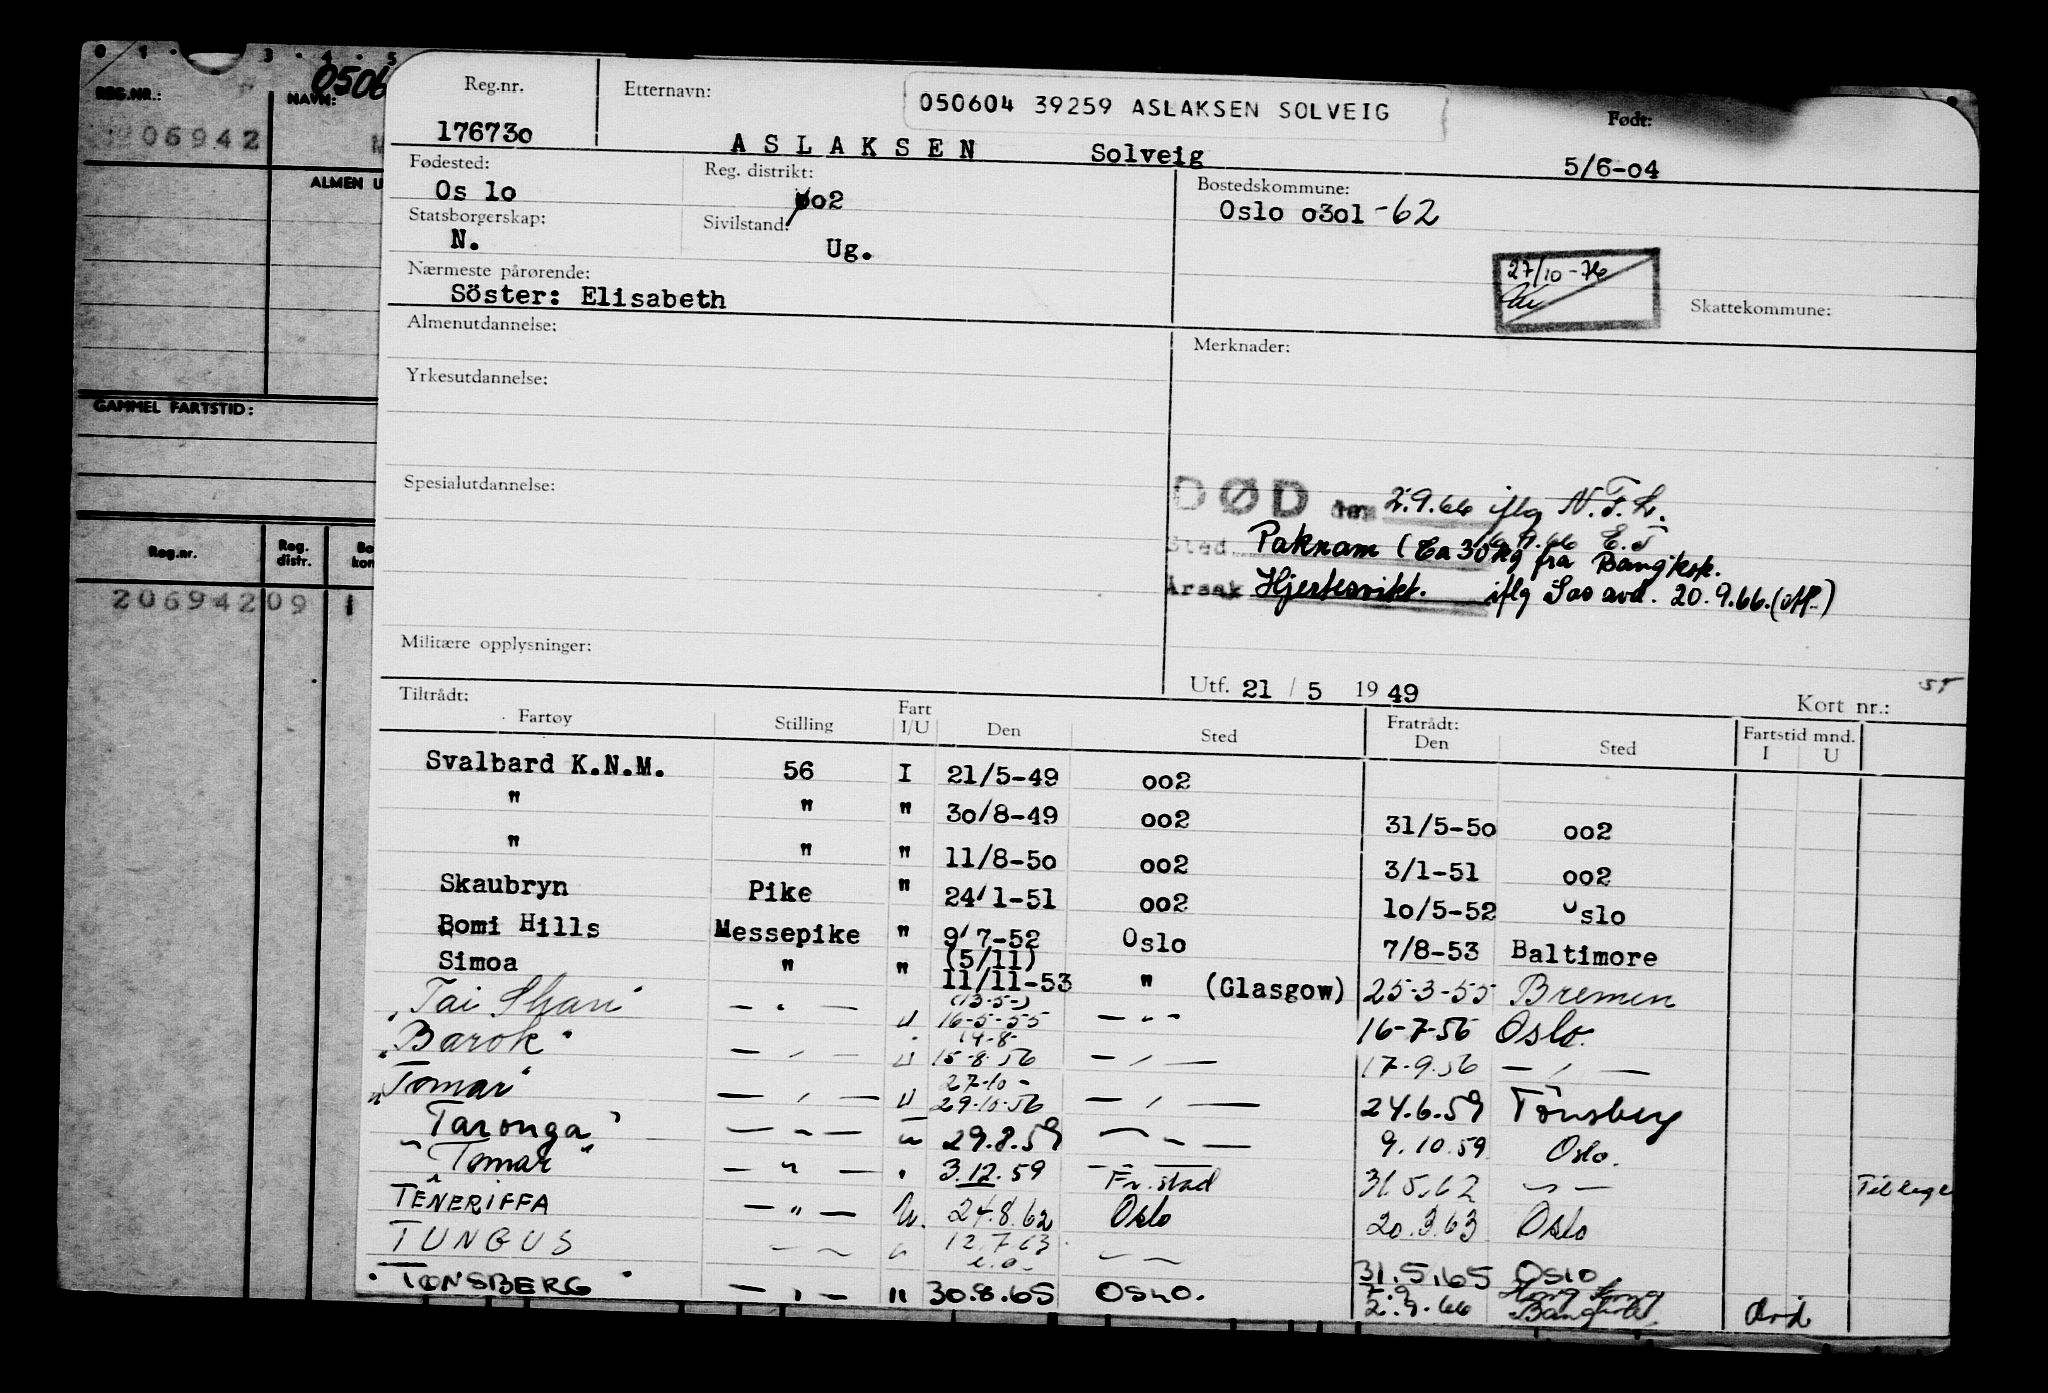 0 1 3 4 5
0506
REG.NR.: NAVN:
206942
ALMEN U
GAMMEL FARTSTID:
Reg.nr. Reg. distr. Bo kom
206942 09 1
Reg.nr. Etternavn: 050604 39259 ASLAKSEN SOLVEIG Født:
176730 ASLAKSEN Solveig 5/6-04
Fødested: Reg. distrikt: Bostedskommune:
Os lo oo2 Oslo o3o1 -62
Statsborgerskap: Sivilstand:
N. Ug.
27/10-76
Nærmeste pårørende:
Söster: Elisabeth Skattekommune:
Almenutdannelse: Merknader:
Yrkesutdannelse:
Spesialutdannelse:
DØD den 2.9.66 iflg N.T.L.
Sted Paknam (Ca 30 kg fra Bangkok.
Årsak Hjertesvikt. iflg Soo avd. 20.9.66.
Militære opplysninger:
Utf. 21 / 5 19 49 Kort nr.:
Tiltrådt: Fart Fratrådt: Fartstid mnd.
Fartøy Stilling I/U Den Sted Den Sted I U
Svalbard K.N.M. 56 I 21/5-49 oo2
" " " 30/8-49 oo2 31/5-50 oo2
" " " 11/8-50 oo2 3/1-51 oo2
Skaubryn Pike " 24/1-51 oo2 10/5-52 Oslo
Bomi Hills Messepike " 9/7-52 Oslo 7/8-53 Baltimore
Simoa " " (5/11) 11/11-53 " (Glasgow) 25-3-55 Bremen
"Tai Shan" - " - U (13-5-) 16-5-55 - " - 16-7-56 Oslo.
"Barok" - " - U 14-8- 15-8-56 - " - 17-9-56 - " -
"Tomar" - " - U 27-10- 29-10-56 - " - 24.6.59 Tönsberg
"Taronga" - " - " 29.8.59 - " - 9.10.59 Oslo.
"Tomar" - " - " 3.12.59 Fr.stad 31.5.62 - " -
TENERIFFA - " - U. 24.8.62 Oslo 20.3.63 Oslo
TUNGUS - " - " 12.7.63 - " - 31.5.65 OSLO
"TØNSBERG" - " - " 30.8.65 OSLO. 2.9.66 Hong Kong Bangkok død